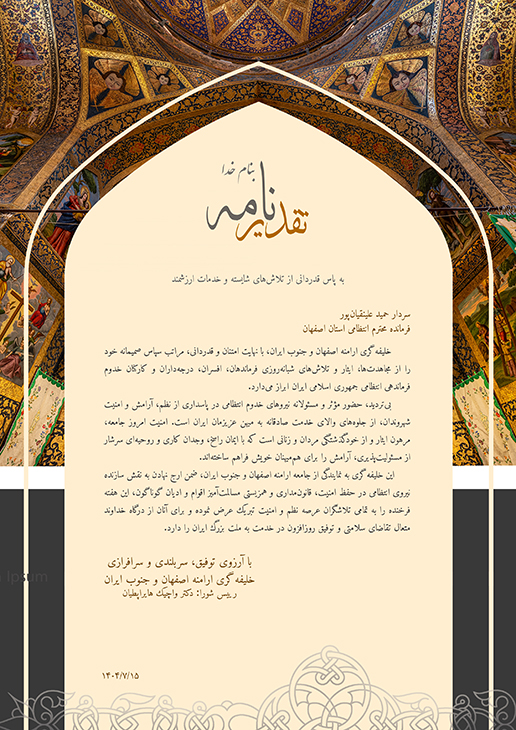 بنام خدا
تقدیرنامه
به پاس قدردانی از تلاش‌های شایسته و خدمات ارزشمند
سردار حمید علینقیان‌پور
فرمانده محترم انتظامی استان اصفهان
خلیفه‌گری ارامنه اصفهان و جنوب ایران، با نهایت امتنان و قدردانی، مراتب سپاس صمیمانه خود
را از مجاهدت‌ها، ایثار و تلاش‌های شبانه‌روزی فرماندهان، افسران، درجه‌داران و کارکنان خدوم
فرماندهی انتظامی جمهوری اسلامی ایران ابراز می‌دارد.
بی‌تردید، حضور مؤثر و مسئولانه نیروهای خدوم انتظامی در پاسداری از نظم، آرامش و امنیت
شهروندان، از جلوه‌های والای خدمت صادقانه به میهن عزیزمان ایران است. امنیت امروز جامعه،
مرهون ایثار و از خودگذشتگی مردان و زنانی است که با ایمان راسخ، وجدان کاری و روحیه‌ای سرشار
از مسئولیت‌پذیری، آرامش را برای هم‌میهنان خویش فراهم ساخته‌اند.
این خلیفه‌گری به نمایندگی از جامعه ارامنه اصفهان و جنوب ایران، ضمن ارج نهادن به نقش سازنده
نیروی انتظامی در حفظ امنیت، قانون‌مداری و همزیستی مسالمت‌آمیز اقوام و ادیان گوناگون، این هفته
فرخنده را به تمامی تلاشگران عرصه نظم و امنیت تبریک عرض نموده و برای آنان از درگاه خداوند
متعال تقاضای سلامتی و توفیق روزافزون در خدمت به ملت بزرگ ایران را دارد.
با آرزوی توفیق، سربلندی و سرافرازی
خلیفه‌گری ارامنه اصفهان و جنوب ایران
رییس شورا: دکتر واچیک هایراپطیان
۱۴۰۴/۷/۱۵
ipsum